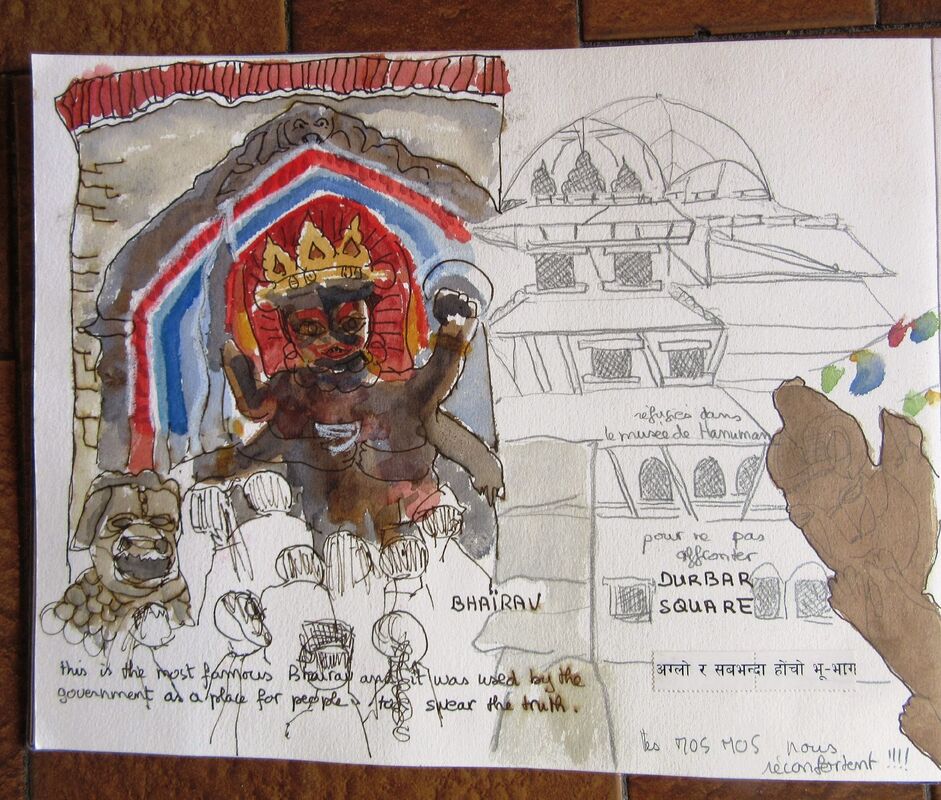 réfugiés dans
le musée de Hanuman
pour ne pas
affronter
DURBAR
SQUARE
BHAÏRAV
this is the most famous Bhairav and it was used by the
government as a place for people to swear the truth.
अग्लो र सबभन्दा होंचो भू-भाग
les MOS MOS nous
réconfortent !!!!